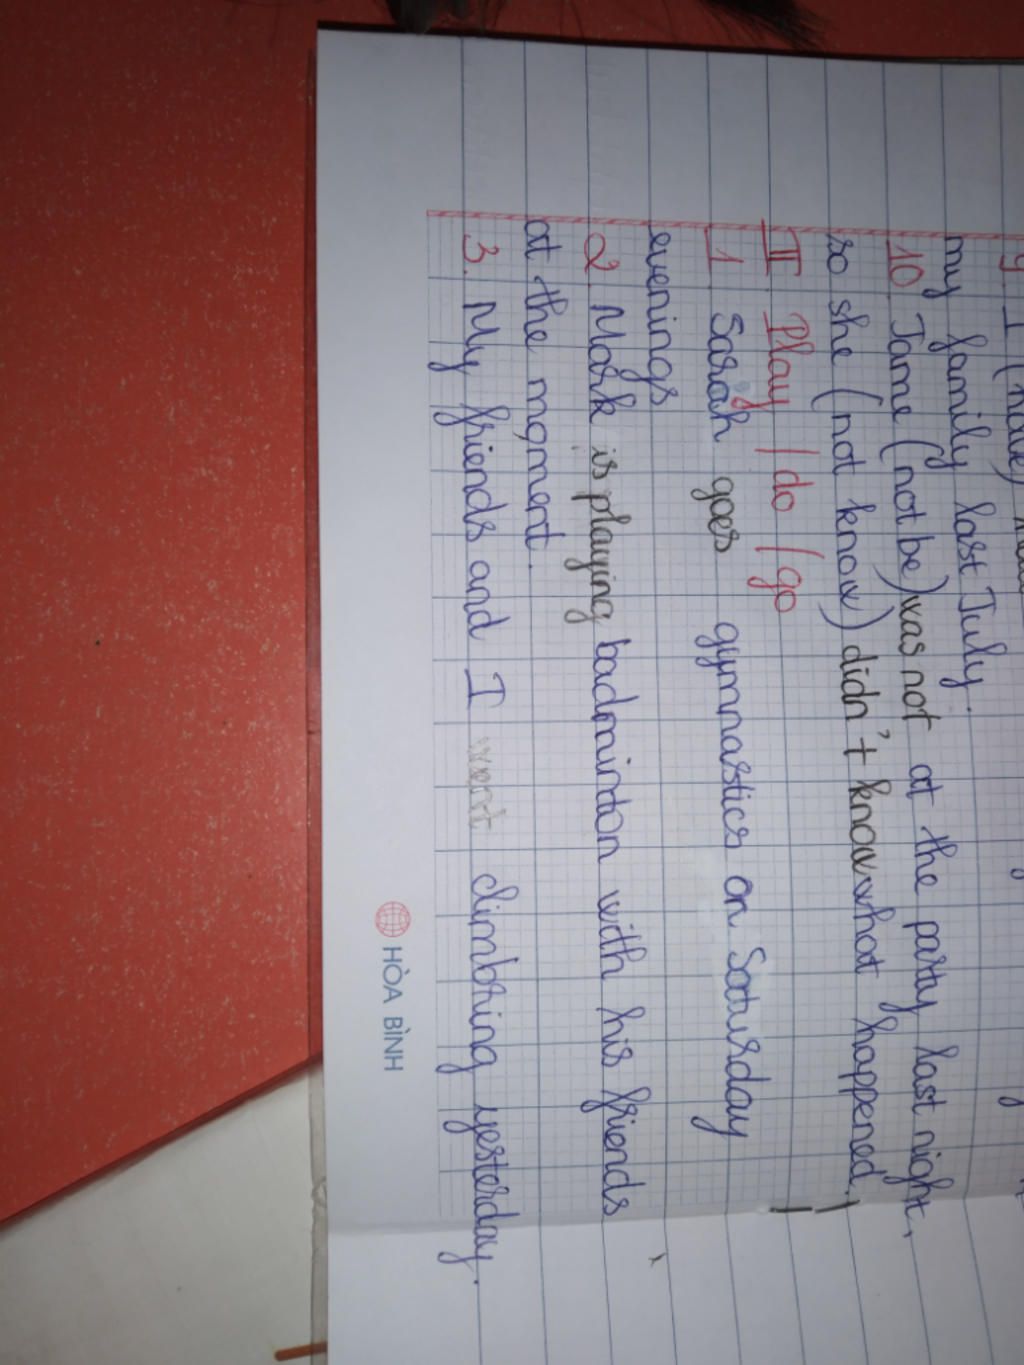 9. I (have)
my family last July.
10. Jame (not be) was not at the party last night,
so she (not know) didn't know what happened.
II. Play / do / go
1. Sarah goes gymnastics on Saturday
evenings
2. Mark is playing badminton with his friends
at the moment.
3. My friends and I went climbing yesterday.
HÒA BÌNH